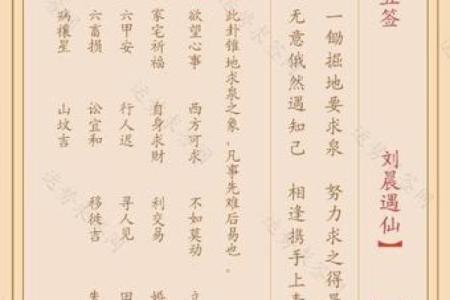 签 刘晨遇仙】
一锄掘地要求泉 努力求之得
无意俄然遇知己 相逢携手上
此卦锥地求泉之象,凡事先难后易也。
欲望心事 西方可求 不如莫动
家宅祈福 自身求财 利交易
六甲安 行人迟 寻人见
六畜损 讼宜和 移徙吉
病禳星 山坟吉